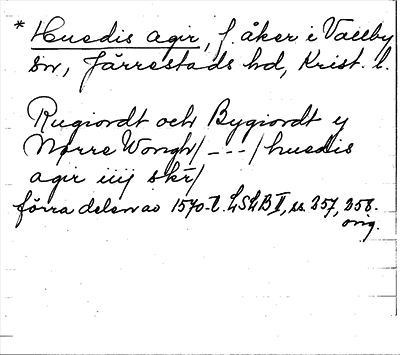 * Huedis agir, f. åker i Vallby
sn, Järrestads hd, Krist. l.
Rugiordt och Bygiordt y
Nørre Wongh/ - - - / huedis
agir iiij skr/
förra delen av 1570-t. LSLB II, ss. 257, 258.
orig.